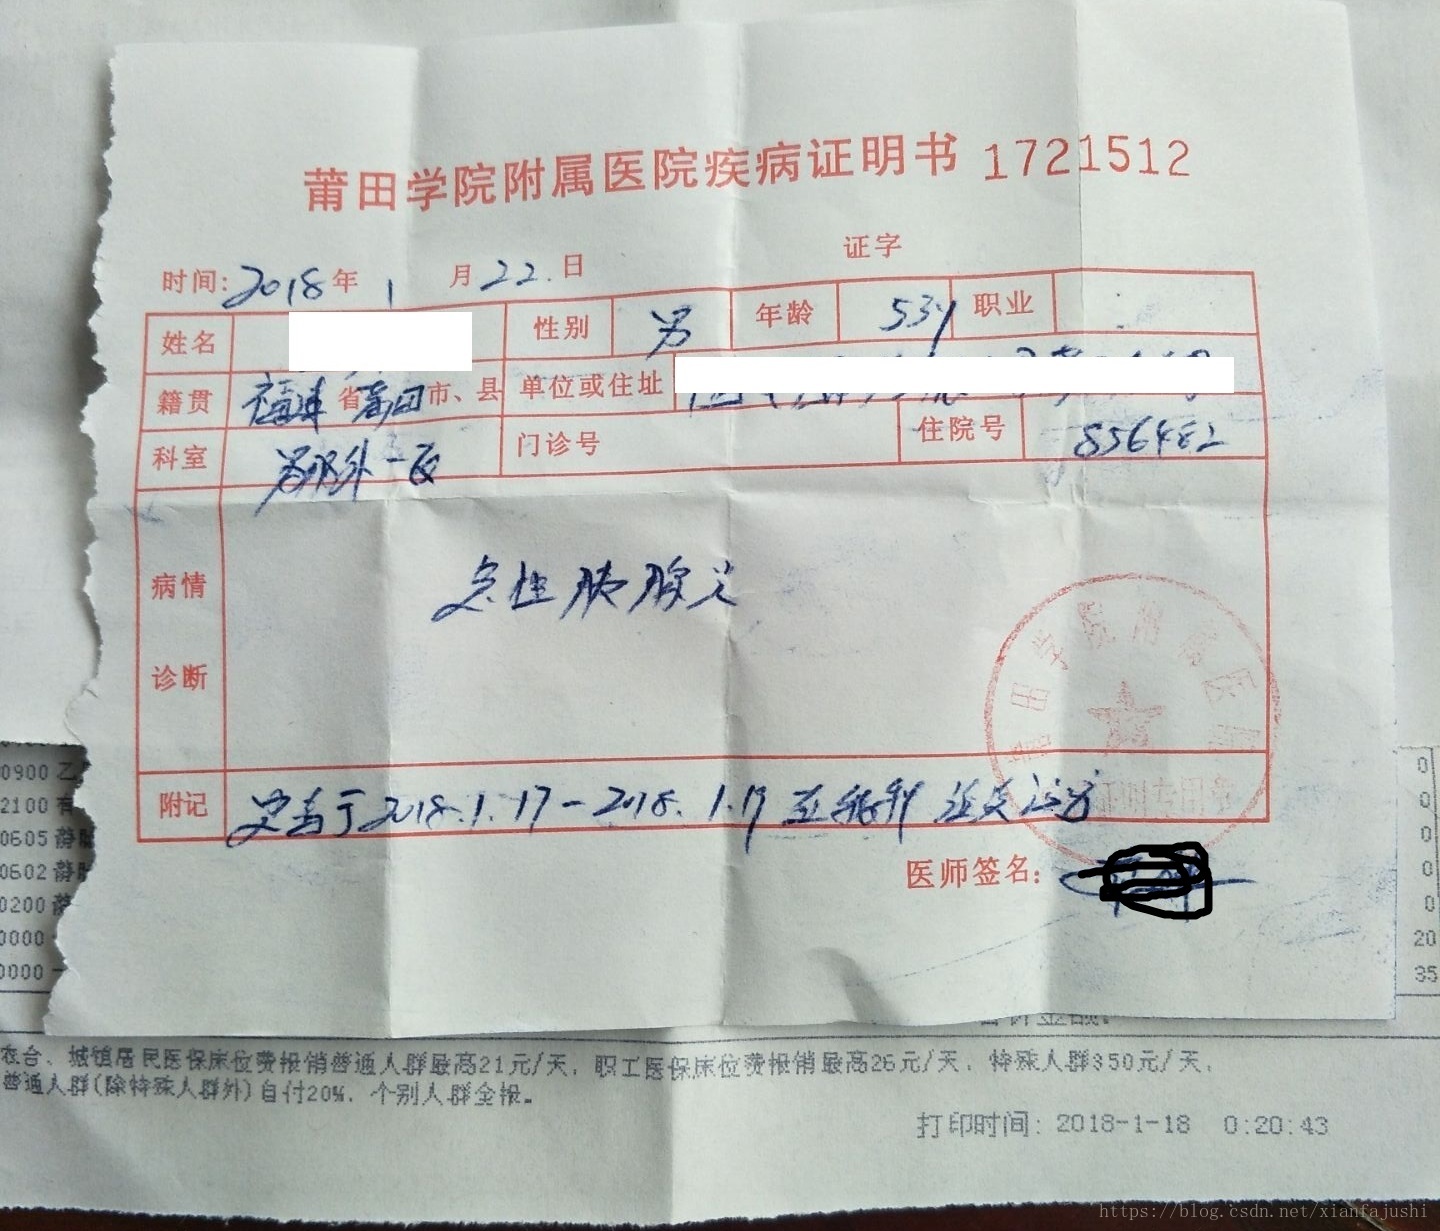 莆田学院附属医院疾病证明书 1721512
证字
时间: 2018 年 1 月 22. 日
姓名 性别 男 年龄 53y 职业
籍贯 福建 省 莆田 市、县 单位或住址
科室 外一区 门诊号 住院号
病情 诊断 急性胰腺炎
附记 患者于2018.1.17-2018.1.17 至我科 住院治疗
医师签名:
莆田学院附属医院
证明专用章
0900 乙
2100 有
0605 静脉
0602 静
0200 静
0000
0000
0
0
0
0
0
20
35
合计金额:
床位费报销普通人群最高21元/天, 职工医保床位费报销最高26元/天, 特殊人群350元/天,
普通人群(除特殊人群外)自付20%, 个别人群全报。
打印时间: 2018-1-18 0:20:43
https://blog.csdn.net/xianfajushi